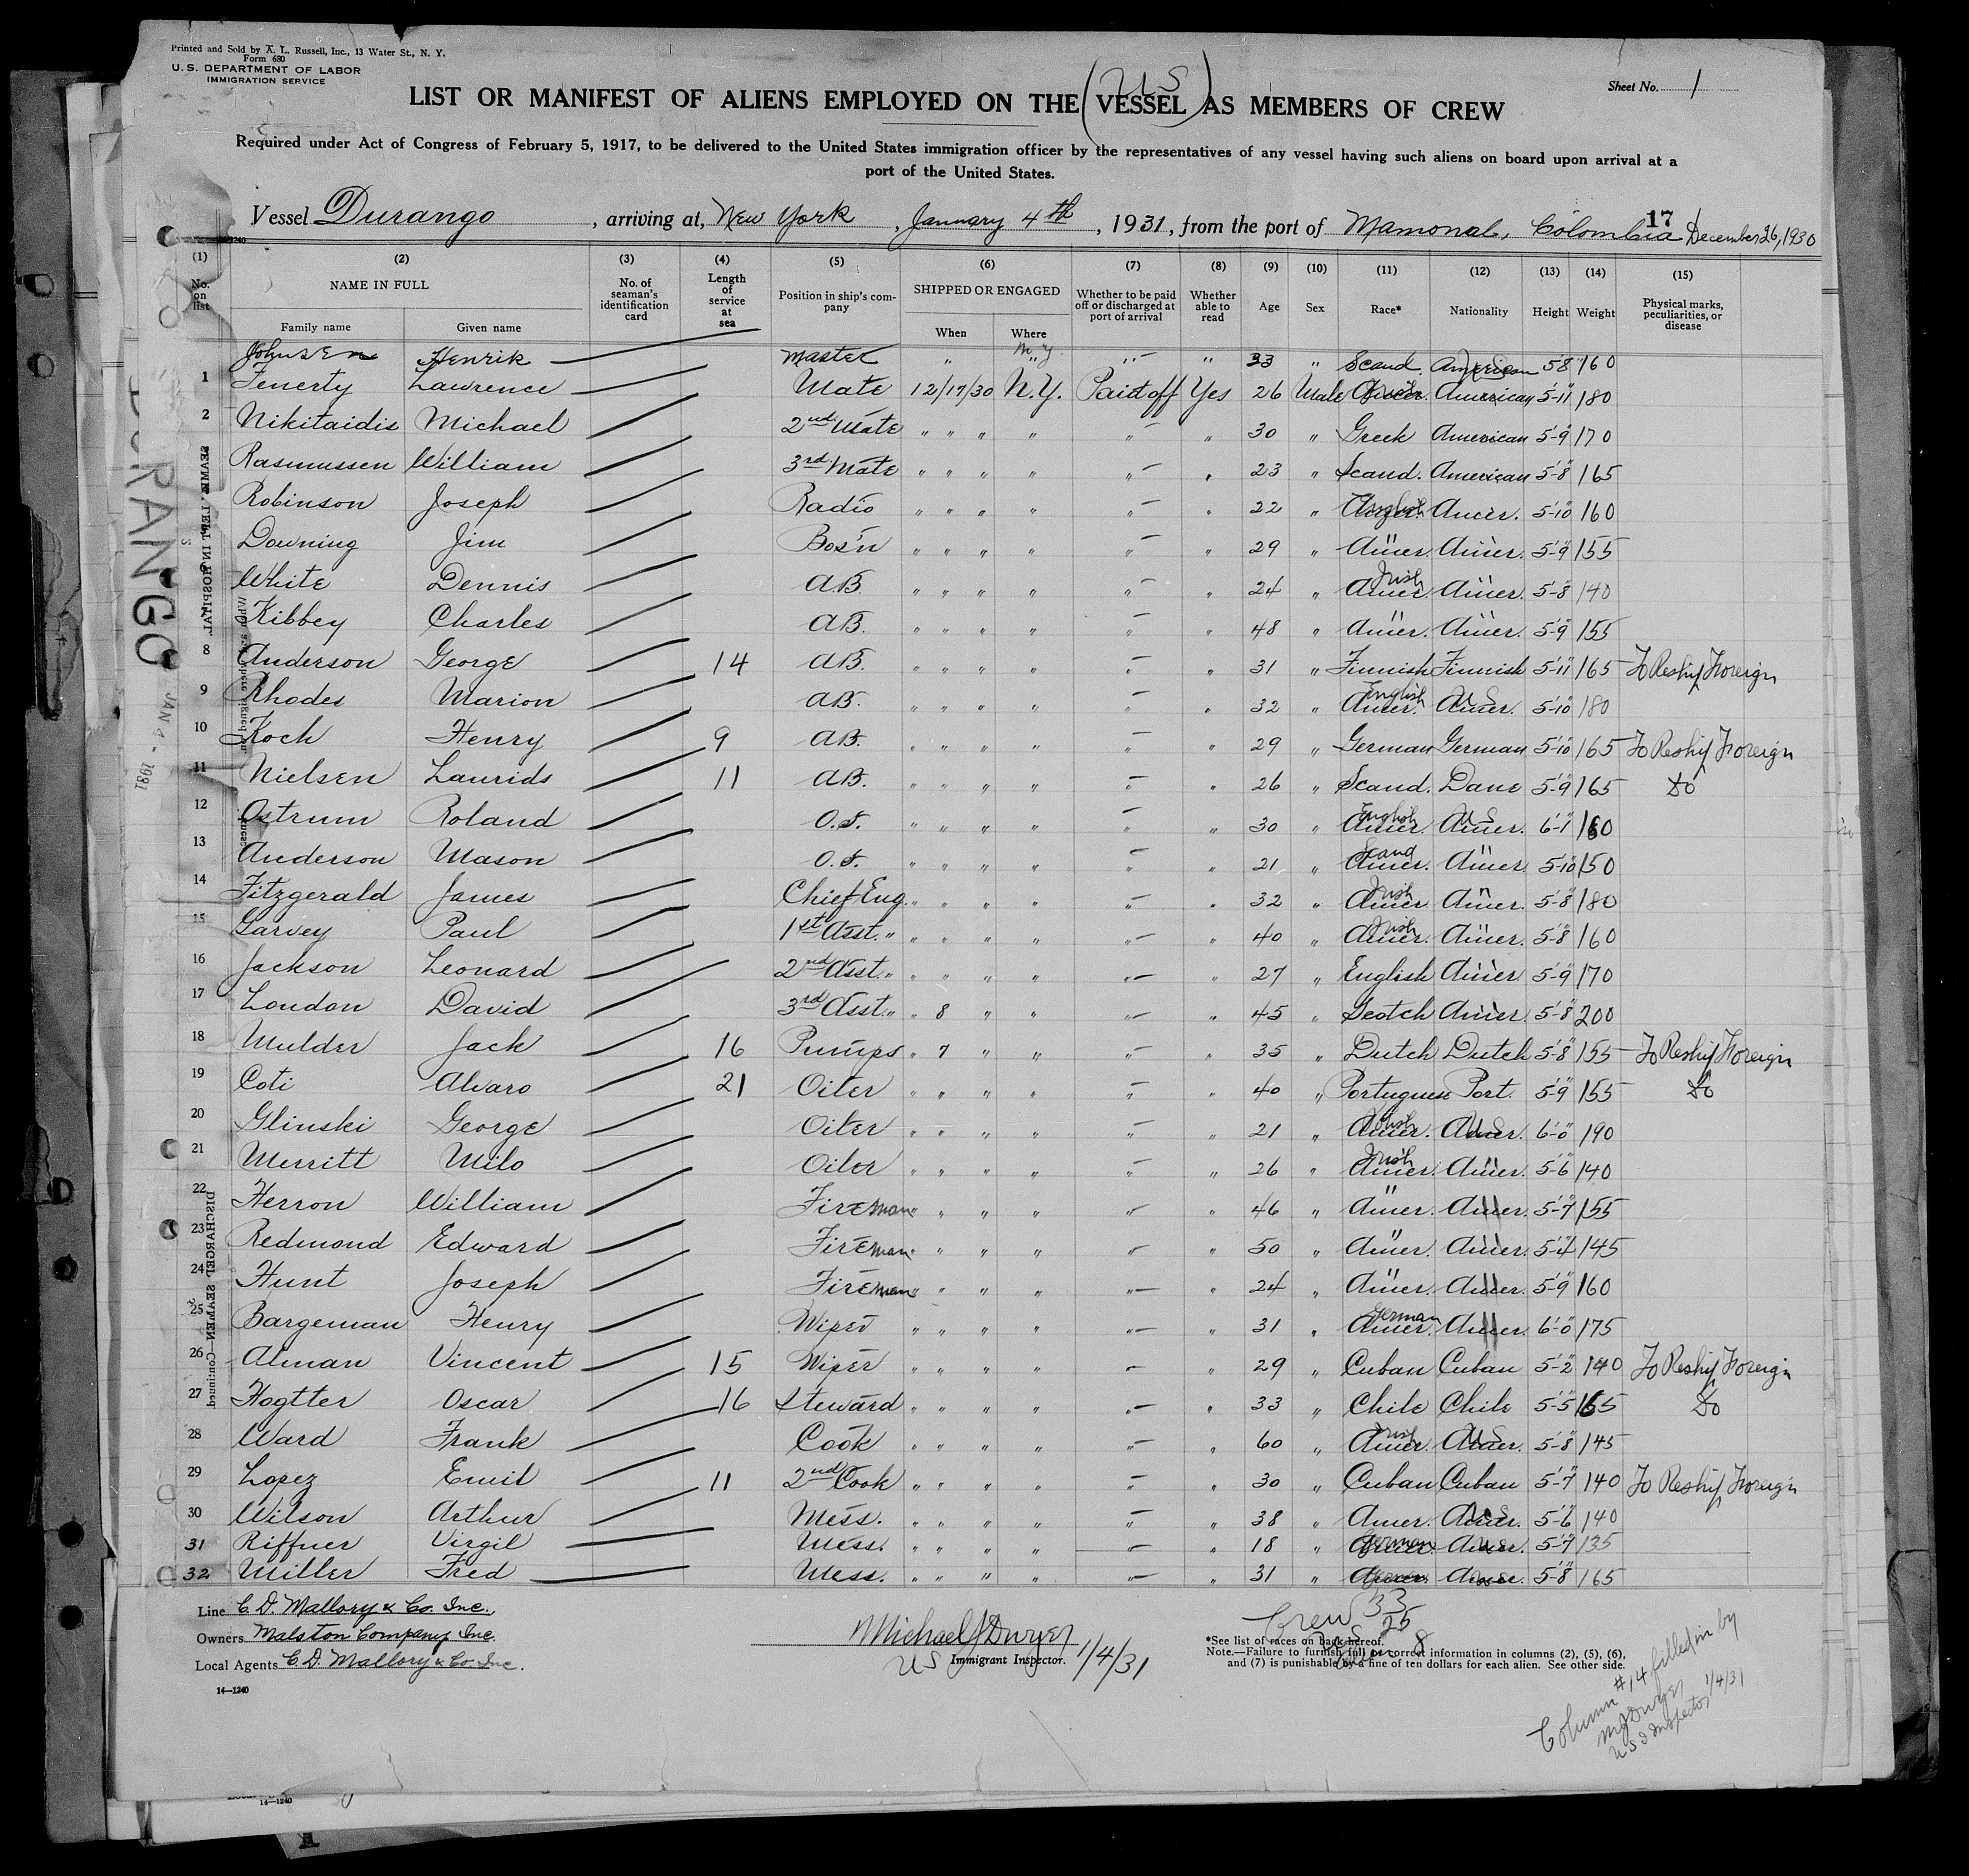 Printed and Sold by A. L. Russell, Inc., 13 Water St., N. Y.
Form 680
U. S. DEPARTMENT OF LABOR
IMMIGRATION SERVICE
Sheet No. 1
LIST OR MANIFEST OF ALIENS EMPLOYED ON THE (VESSEL) AS MEMBERS OF CREW
US
Required under Act of Congress of February 5, 1917, to be delivered to the United States immigration officer by the representatives of any vessel having such aliens on board upon arrival at a
port of the United States.
17
Vessel Durango, arriving at, New York, January 4th, 1931, from the port of Mamonal, Colombia December 26, 1930
(1) (2) (3) (4) (5) (6) (7) (8) (9) (10) (11) (12) (13) (14) (15)
No. on list NAME IN FULL No. of seaman's identification card Length of service at sea Position in ship's company SHIPPED OR ENGAGED Whether to be paid off or discharged at port of arrival Whether able to read Age Sex Race* Nationality Height Weight Physical marks, peculiarities, or disease
Family name Given name When Where
Johnsen Henrik Master " N.Y. " — " 33 " Scand. American 5 8 160
1 Fenerty Lawrence Mate 12/17/30 N.Y. Paid off Yes 26 Male American 5-11 180
2 Nikitaidis Michael 2nd Mate " " " " " — " 30 " Greek American 5-9 170
Rasmussen William 3rd Mate " " " " " — " 23 " Scand. American 5-8 165
Robinson Joseph Radio " " " " " — " 22 " English Amer. 5-10 160
Downing Jim Bos'n " " " " " — " 29 " Amer. Amer. 5-9 155
White Dennis A.B. " " " " " — " 24 " Amer. Irish Amer. 5-8 140
Kibbey Charles A.B. " " " " " — " 48 " Amer. Amer. 5-9 155
8 Anderson George 14 A.B. " " " " " — " 31 " Finnish Finnish 5-11 165 To Reship Foreign
9 Rhodes Marion A.B. " " " " " — " 32 " Amer. English Amer. U S 5-10 180
10 Koch Henry 9 A.B. " " " " " — " 29 " German German 5-10 165 To Reship Foreign
11 Nielsen Laurids 11 A.B. " " " " " — " 26 " Scand. Dane 5-9 165 do
12 Ostrum Roland O.S. " " " " " — " 30 " Amer. English Amer. U S 6-1 180
13 Anderson Mason O.S. " " " " " — " 21 " Amer. Scand Amer. 5-10 150
14 Fitzgerald James Chief Eng. " " " " " — " 32 " Amer. Irish Amer. 5-8 180
15 Garvey Paul 1st Asst. " " " " " " — " 40 " Amer. Irish Amer. 5-8 160
16 Jackson Leonard 2nd Asst. " " " " " " — " 27 " English Amer. 5-9 170
17 London David 3rd Asst. " " 8 " " " — " 45 " Scotch Amer. 5-8 200
18 Mulder Jack 16 Pumps " 7 " " " — " 35 " Dutch Dutch 5-8 155 To Reship Foreign
19 Coti Alvaro 21 Oiler " " " " " — " 40 " Portuguese Port. 5-9 155 do
20 Glinski George Oiler " " " " " — " 21 " Amer. Amer. U S 6-0 190
21 Merritt Milo Oiler " " " " " — " 26 " Amer. Irish Amer. 5-6 140
22 Herron William Fireman " " " " " — " 46 " Amer. Amer. 5-7 155
23 Redmond Edward Fireman " " " " " — " 50 " Amer. Amer. 5-4 145
24 Hunt Joseph Fireman " " " " " — " 24 " Amer. Amer. 5-9 160
25 Bargeman Henry Wiper " " " " " — " 31 " Amer. German Amer. 6-0 175
26 Alman Vincent 15 Wiper " " " " " — " 29 " Cuban Cuban 5-2 140 To Reship Foreign
27 Hogtter Oscar 16 Steward " " " " " — " 33 " Chile Chile 5-5 165 do
28 Ward Frank Cook " " " " " — " 60 " Amer. Irish Amer. U S 5-8 145
29 Lopez Emil 11 2nd Cook " " " " " — " 30 " Cuban Cuban 5-7 140 To Reship Foreign
30 Wilson Arthur Mess. " " " " " — " 38 " Amer. Amer. U S 5-6 140
31 Riffner Virgil Mess. " " " " " — " 18 " German Amer. U S 5-7 135
32 Miller Fred Mess. " " " " " — " 31 " Amer. Amer. 5-8 165
SEAMEN LEFT IN HOSPITAL
DISCHARGED SEAMEN—Continued
DURANGO
JAN 4 - 1931
Line C. D. Mallory & Co. Inc.
Owners Malston Company Inc.
Local Agents C. D. Mallory & Co. Inc.
14—1240
Michael J Dwyer
US Immigrant Inspector. 1/4/31
Crew 33
25
8
*See list of races on back hereof.
Note.—Failure to furnish full or correct information in columns (2), (5), (6),
and (7) is punishable by a fine of ten dollars for each alien. See other side.
Column #14 filled in by
MJ Dwyer
U S I Inspector 1/4/31
14—1240